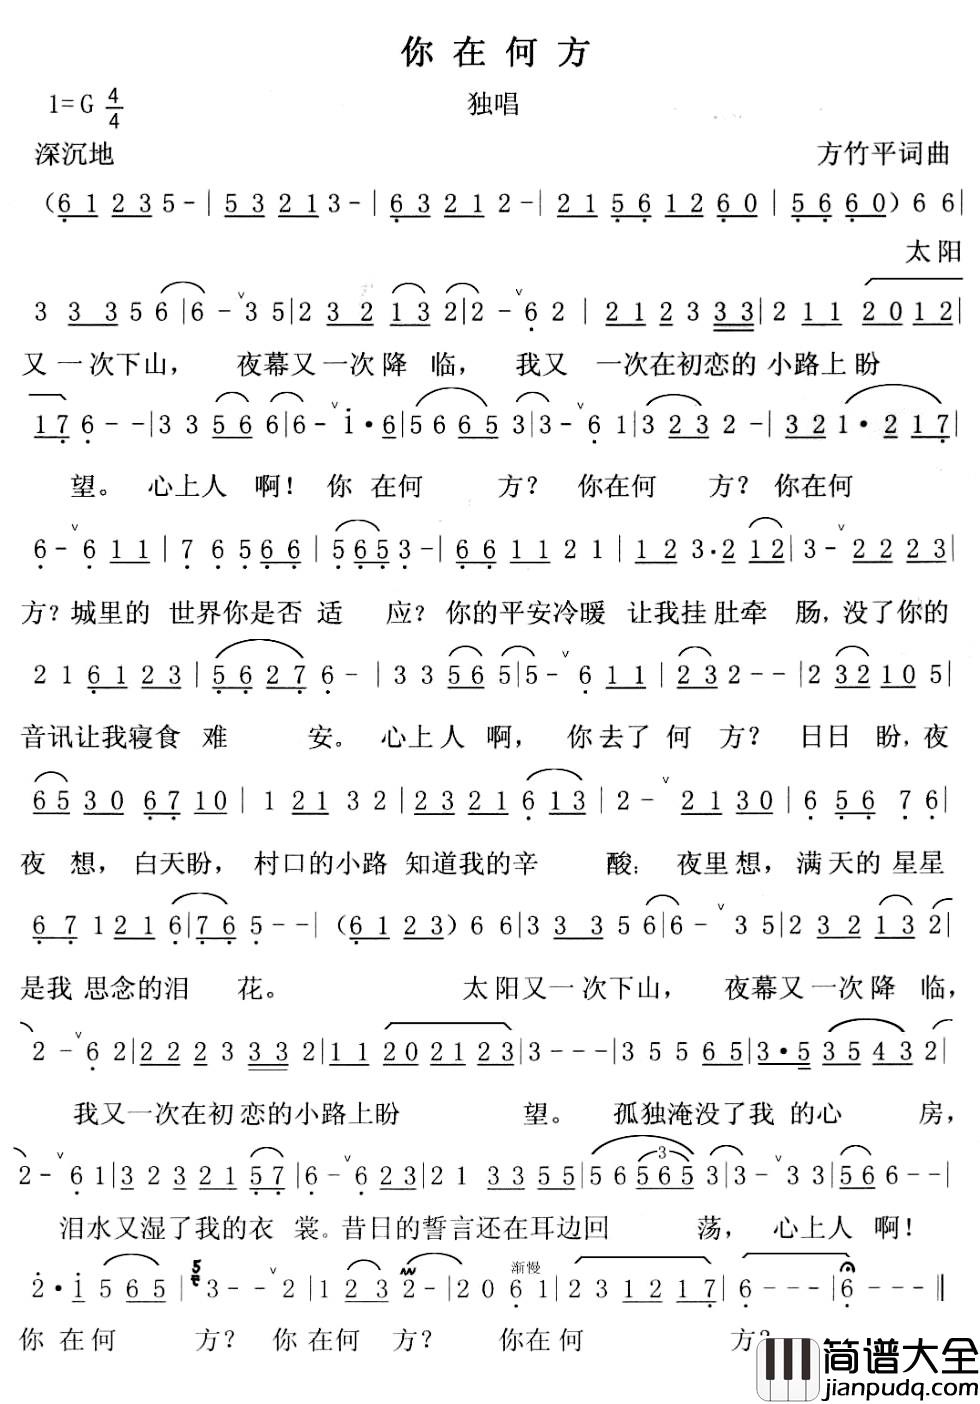 你在何方
1=G 4/4
独唱
深沉地
方竹平词曲
(6 1 2 3 5 - | 5 3 2 1 3 - | 6 3 2 1 2 - | 2 1 5 6 1 2 6 0 | 5 6 6 0) 6 6 |
太阳
3 3 3 5 6 | 6 - ˅ 3 5 | 2 3 2 1 3 2 | 2 - ˅ 6 2 | 2 1 2 3 3 3 | 2 1 1 2 0 1 2 |
又一次下山， 夜幕又一次降 临， 我又 一次在初恋的小路上盼
1 7 6 - - | 3 3 5 6 6 | 6 - ˅ i · 6 | 5 6 6 5 3 | 3 - ˅ 6 1 | 3 2 3 2 - | 3 2 1 · 2 1 7 |
望。 心上人 啊！ 你 在何 方？ 你在何 方？ 你在何
6 - ˅ 6 1 1 | 7 6 5 6 6 | 5 6 5 3 - | 6 6 1 1 2 1 | 1 2 3 · 2 1 2 | 3 - ˅ 2 2 2 3 |
方？城里的 世界你是否 适 应？你的平安冷暖 让我挂 肚牵 肠，没了你的
2 1 6 1 2 3 | 5 6 2 7 6 - | 3 3 5 6 5 | 5 - ˅ 6 1 1 | 2 3 2 - - | 2 3 2 1 0 5 |
音讯让我寝食 难 安。 心上人 啊， 你去了 何 方？ 日日 盼，夜
6 5 3 0 6 7 1 0 | 1 2 1 3 2 | 2 3 2 1 6 1 3 | 2 - ˅ 2 1 3 0 | 6 5 6 7 6 |
夜 想， 白天盼， 村口的小路 知道我的辛 酸； 夜里想， 满天的星星
6 7 1 2 1 6 | 7 6 5 - - | (6 1 2 3) 6 6 | 3 3 3 5 6 | 6 - ˅ 3 5 | 2 3 2 1 3 2 |
是我 思念的泪 花。 太阳又一次下山， 夜幕又一次降 临，
2 - ˅ 6 2 | 2 2 2 3 3 3 2 | 1 1 2 0 2 1 2 3 | 3 - - - | 3 5 5 6 5 | 3 · 5 3 5 4 3 2 |
我又一次在初恋的小路上盼 望。 孤独淹没了我 的心 房，
2 - ˅ 6 1 | 3 2 3 2 1 5 7 | 6 - ˅ 6 2 3 | 2 1 3 3 5 5 | 5 6 5 6 5 3 | 3 - ˅ 3 3 | 5 6 6 - - |
3
泪水又湿了我的衣 裳。昔日的誓言还在耳边回 荡， 心上人 啊！
2 · i 5 6 5 | 3 - - ˅ 2 | 1 2 3 2 - | 2 0 6 1 | 2 3 1 2 1 7 | 6 - - - | 6 - - - ‖
渐慢
你 在何 方？ 你在何 方？ 你在何 方？
简谱大全
jianpudq.com